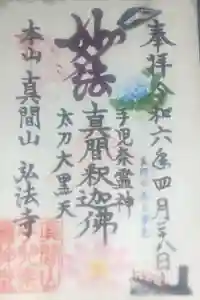 奉拝 令和六年四月二八日
手児奈霊神
妙法
真間釈迦佛
太刀大黒天
本山真間山弘法寺